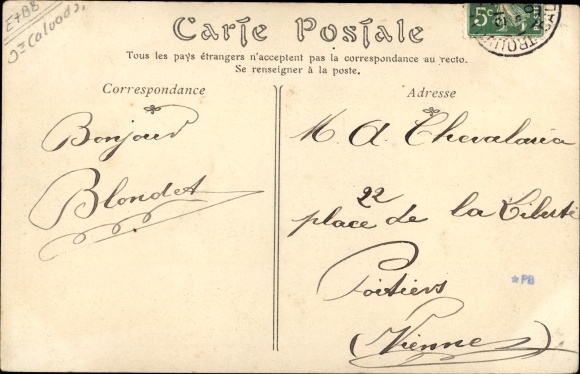 E788
Dt Calvados
Carte Postale
Tous les pays étrangers n'acceptent pas la correspondance au recto.
Se renseigner à la poste.
Correspondance
Adresse
5c
Bonjour
Blondet
M. A. Chevalaria
22
place de la Liberté
Poitiers
(Vienne)
*PB